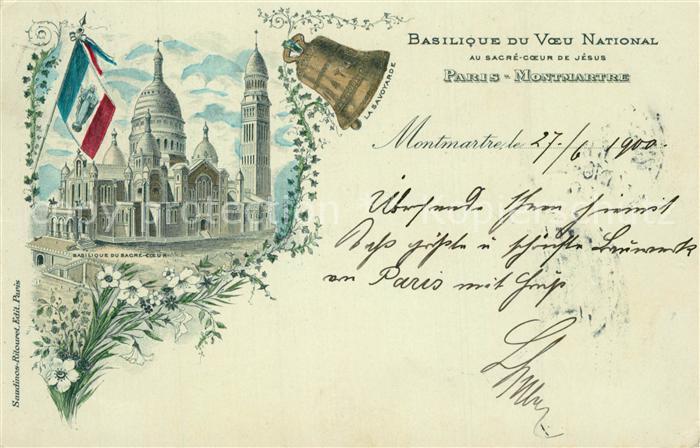 BASILIQUE DU VŒU NATIONAL
AU SACRÉ-CŒUR DE JÉSUS
PARIS - MONTMARTRE
LA SAVOYARDE
Montmartre, le 27/6 1900.
Übersende Ihnen hiemit
das größte u schönste Bauwerk
von Paris mit Gruß
BASILIQUE DU SACRÉ-CŒUR
Saudinos-Ritouret, Edit. Paris